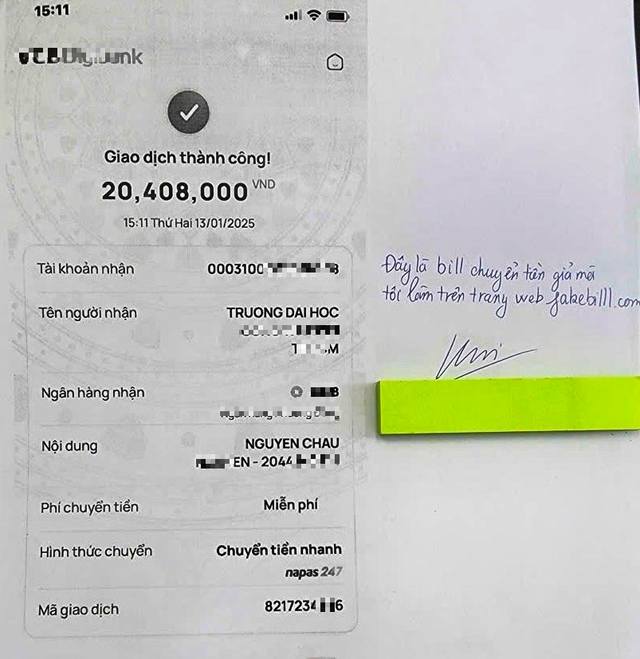 15:11
Giao dịch thành công!
20,408,000 VND
15:11 Thứ Hai 13/01/2025
Tài khoản nhận 0003100
Tên người nhận TRUONG DAI HOC
Ngân hàng nhận
Nội dung NGUYEN CHAU
EN - 2044
Phí chuyển tiền Miễn phí
Hình thức chuyển Chuyển tiền nhanh
napas 247
Mã giao dịch 8217234
Đây là bill chuyển tiền giả mà
tôi làm trên trang web fakebill.com